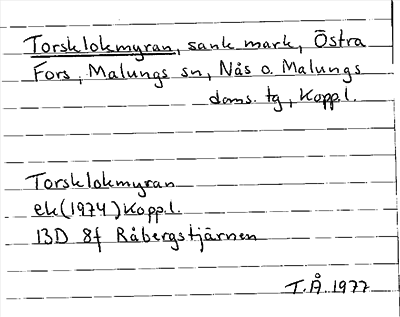 Torsklokmyran, sank mark, Östra
Fors, Malungs sn, Nås o. Malungs
doms. tg, Kopp.l.
Torsklokmyran
ek(1974)Kopp.l.
13D 8f Råbergstjärnen
T.Å.1977